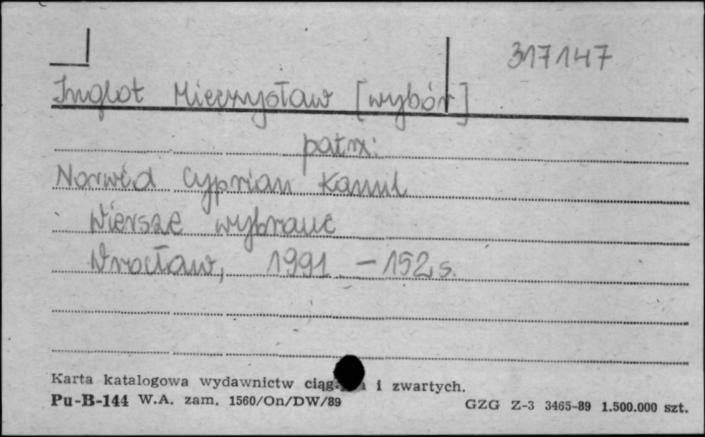 317147
Inglot Mieczysław [wybór]
patrz:
Norwid Cyprian Kamil
Wiersze wybrane
Wrocław, 1991 - 152 s.
Karta katalogowa wydawnictw i zwartych.
Pu-B-144 W.A. zam. 1560/On/DW/89 GZG Z-3 3465-89 1.500.000 szt.